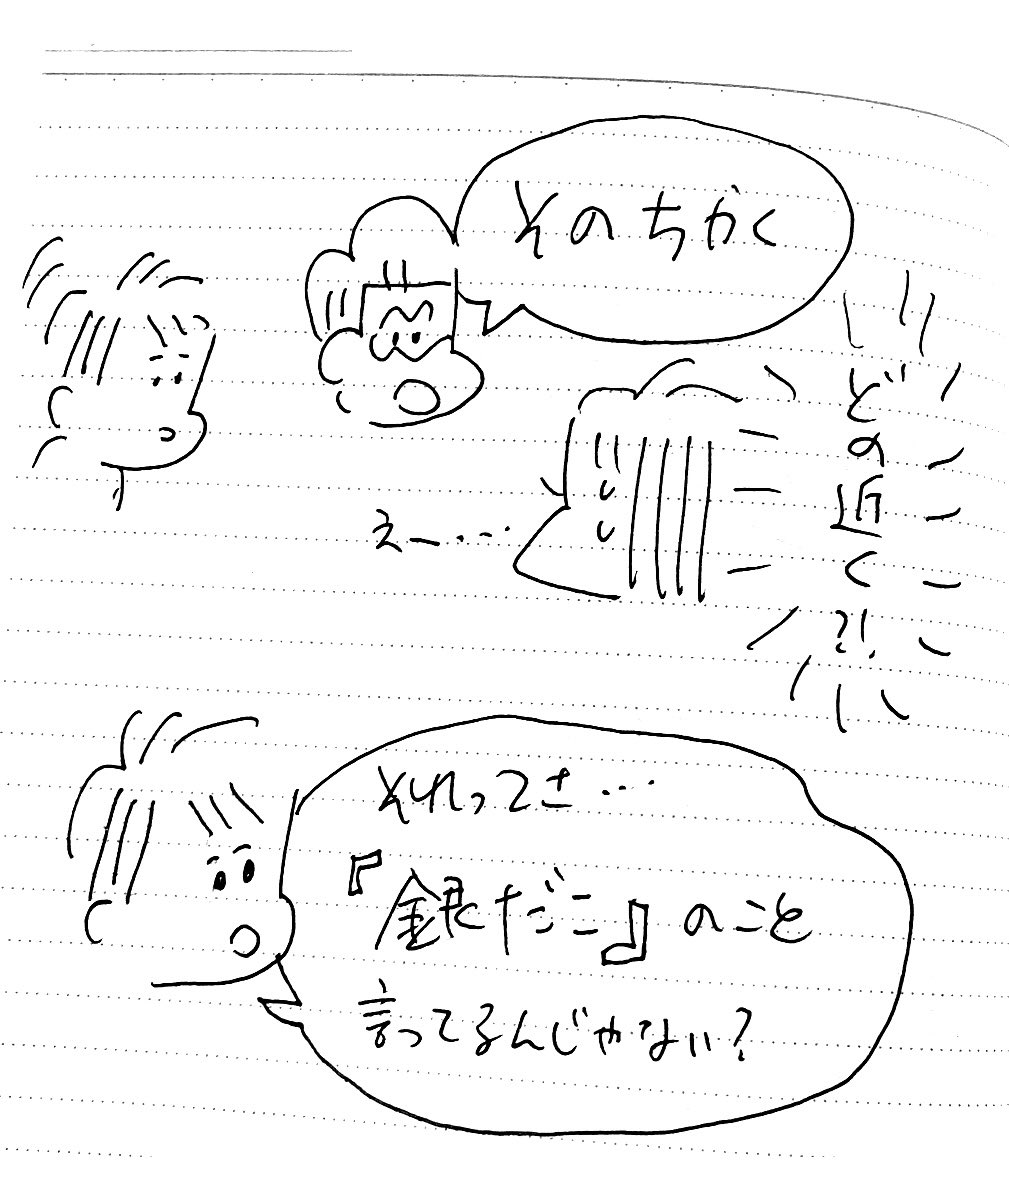 そのちかく
どの近く?!
えー・・・
それってさ…
『銀だこ』のこと
言ってるんじゃない?